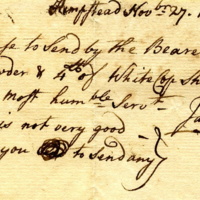 Hempstead Novbr 27.
to Send by the Beare
wder & 4 lb of White Sh
most humble Servt
is not very good
you to Send any